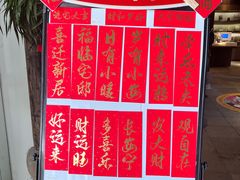 喜迁新居
福临宅邸
日有小暖
岁有小安
时来运转
好运来
财运旺
多喜乐
长安宁
发大财
观自在